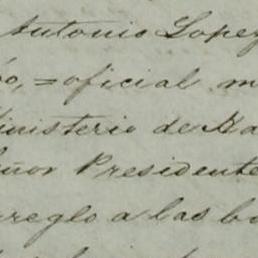 Antonio Lopez
oficial m
Ministerio de Ha
eñor Presidente
rreglo a las ba